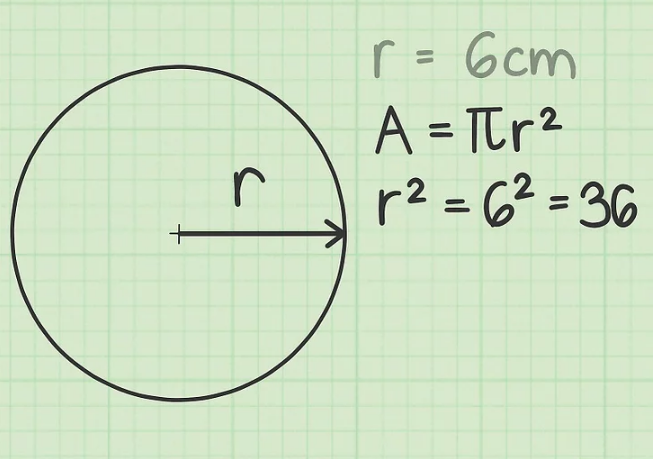 r = 6cm
A = πr²
r² = 6² = 36
r